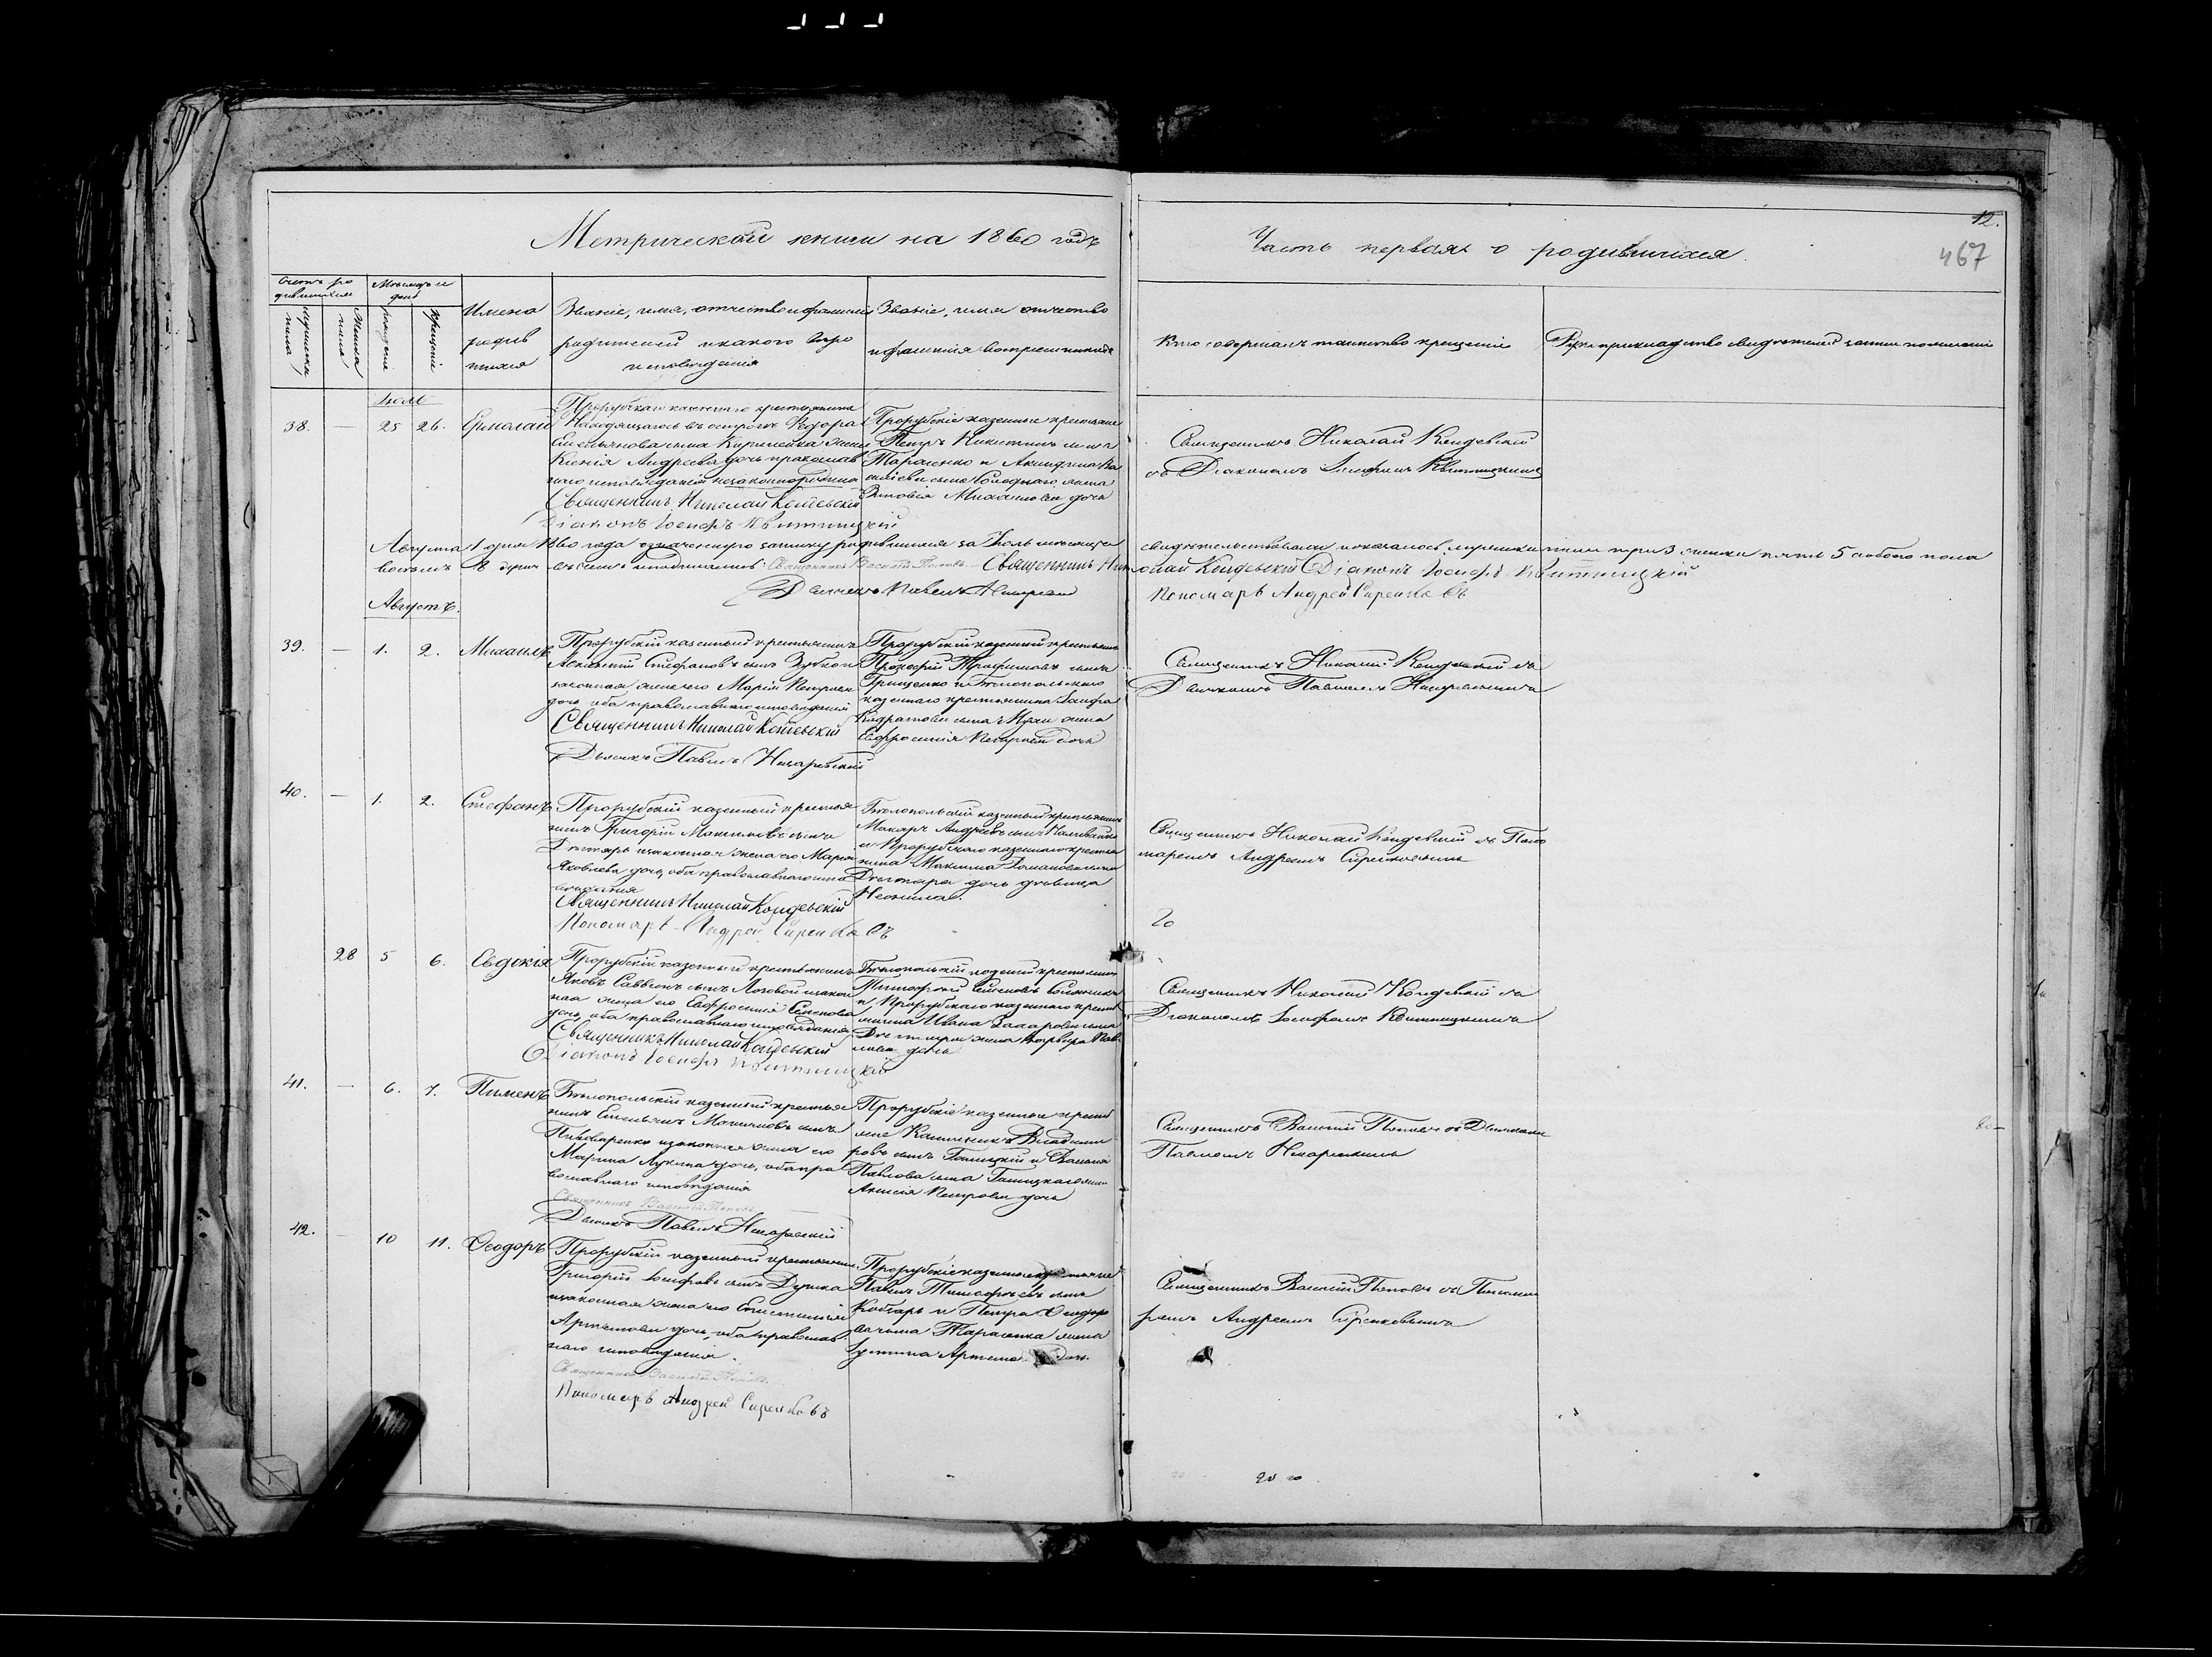 Метрической книги на 1860 годъ
Часть первая о родившихся.
12.
467
Счетъ ро
дившихся
Мѣсяцъ и
день
мужеска
пола
Женска
пола
рожденія
крещенія
Имена
родив
шихся
Званіе, имя, отчество и фамилія
родителей и какого вѣро
исповѣданія
Званіе, имя отчество
и фамилія воспріемниковъ
Кто совершалъ таинство крещенія
Рукоприкладство свидѣтелей записи по желанію
Іюль
38. — 25 26. Ермолай
Прорубскаго казеннаго крестьянина
Находящагося въ острогѣ Ѳедора
сына Кириленка жены
Ксенія Андреева дочь православ
наго исповѣданія незаконнорожденна
Священникъ Николай Кондевскій
Діаконъ Іосифъ Квитницкій
Прорубскіе казенные крестьяне
Петръ Никитинъ сынъ
Тарасенко и Акиндина Ва
сильева сына жена
Зиновія Михайлова дочь
Священникъ Николай Кондевскій
съ Діакономъ Іосифомъ Квитницкимъ
Августа 1 дня 1860 года означенную записку родившихся за Іюль мѣсяцъ свидѣтельствовали и оказалось мужеска пола три 3 женска пять 5 обоего пола
восемь 8 душъ въ чемъ и подписались Священникъ Василій Поповъ Священникъ Николай Кондевскій Діаконъ Іосифъ Квитницкій
Дьячекъ Павелъ Пономарь Андрей Сиренковъ
Августъ.
39. — 1. 2. Михаилъ
Прорубскій казенный крестьянинъ
Стефановъ сынъ
законная жена его Марія Петрова
дочь оба православнаго исповѣданія
Священникъ Николай Кондевскій
Дьячекъ Павелъ
Прорубскій казенный крестьянинъ
Прокофій Трофимовъ сынъ
Грищенко и Бѣлопольскаго
казеннаго крестьянина
сына жена
Евфросинія Петрова дочь
Священникъ Николай Кондевскій съ
Дьячкомъ Павломъ
40. — 1. 2. Стефанъ
Прорубскій казенный крестья
нинъ Григорій Максимовъ сынъ
Дегтярь и законная жена его Марія
Яковлева дочь, оба православнаго испо
вѣданія
Священникъ Николай Кондевскій
Пономарь Андрей Сиренковъ
Бѣлопольскій казенный крестьянинъ
Макаръ Андреевъ сынъ
и Прорубскаго казеннаго крестья
нина Максима
Дегтяря дочь дѣвица
Неонила.
Священникъ Николай Кондевскій съ Поно
маремъ Андреемъ Сиренковымъ
20
28 5 6. Евдокія
Прорубскій казенный крестьянинъ
Яковъ Саввинъ сынъ Лозовой и закон
ная жена его Евфросинія Семенова
дочь, оба православнаго исповѣданія
Священникъ Николай Кондевскій
Діаконъ Іосифъ Квитницкій
Бѣлопольскій казенный крестьянинъ
Тимофей Семеновъ
и Прорубскаго казеннаго крестья
нина Ивана Захарова сына
Дегтяря жена Варвара Пав
лова дочь
Священникъ Николай Кондевскій съ
Діакономъ Іосифомъ Квитницкимъ
41. — 6. 7. Пименъ
Бѣлопольскій казенный крестья
нинъ Емельянъ Максимовъ сынъ
Пивоваренко и законная жена его
Марина Лукина дочь, оба пра
вославнаго исповѣданія
Священникъ Василій Поповъ
Дьячекъ Павелъ
Прорубскіе казенные крестья
не Каленикъ Владими
ровъ сынъ Галицкій и Василія
Павлова сына Галицкаго жена
Анисія Петрова дочь
Священникъ Василій Поповъ съ Дьячкомъ
Павломъ
42. — 10 11. Ѳеодоръ
Прорубскій казенный крестьянинъ
Григорій Іосифовъ сынъ Душка
и законная жена его Епистимія
Артемова дочь, оба православ
наго исповѣданія.
Священникъ Василій Поповъ
Пономарь Андрей Сиренковъ
Прорубскіе казенные крестьяне
Павелъ Тимофеевъ сынъ
Кобзарь и Петра Ѳеодоро
ва сына Тарасенка жена
Устина Артемова дочь.
Священникъ Василій Поповъ съ Понома
ремъ Андреемъ Сиренковымъ